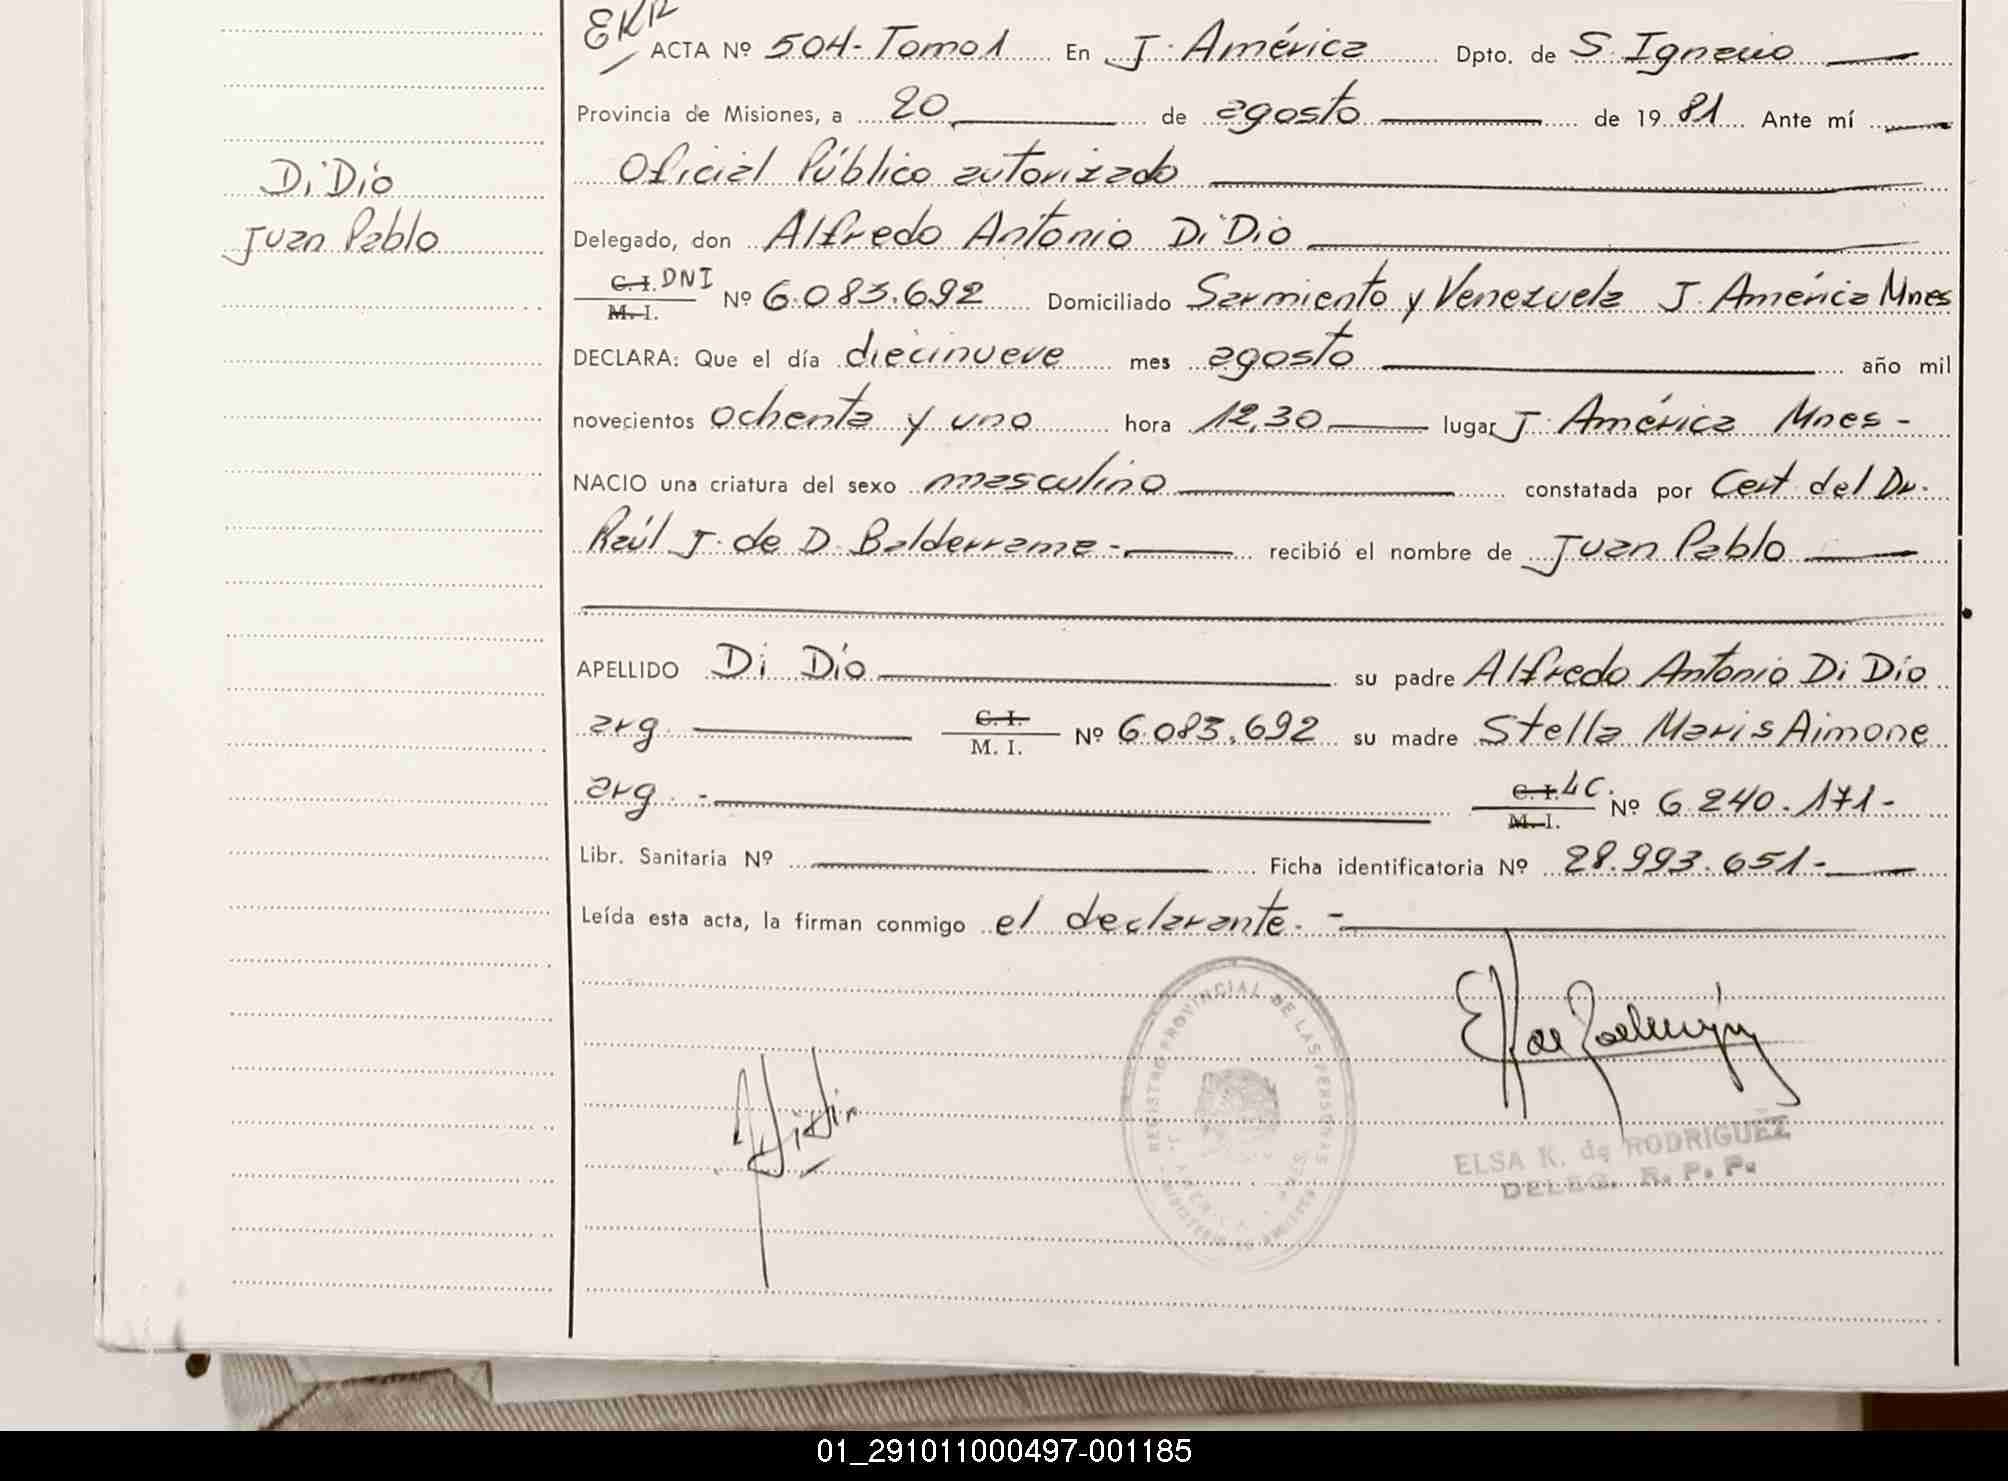 EKR
ACTA Nº 504- Tomo 1 En J. América Dpto. de S. Ignacio
Provincia de Misiones, a 20 de agosto de 1981 Ante mí
Oficial Público autorizado
Di Dio
Juan Pablo
Delegado, don Alfredo Antonio Di Dio
C. I. DNI
M. I. Nº 6.083.692 Domiciliado Sarmiento y Venezuela J. América Mnes
DECLARA: Que el día diecinueve mes agosto año mil
novecientos ochenta y uno hora 12,30 lugar J. América Mnes -
NACIO una criatura del sexo masculino constatada por Cert del Dr.
Raúl J. de D. Balderrame - recibió el nombre de Juan Pablo
APELLIDO Di Dio su padre Alfredo Antonio Di Dio
arg. C. I.
M. I. Nº 6.083.692 su madre Stella Maris Aimone
arg. - C. I. LC.
M. I. Nº 6.240.171-
Libr. Sanitaria Nº Ficha identificatoria Nº 28.993.651-
Leída esta acta, la firman conmigo el declarante. -
REGISTRO PROVINCIAL DE LAS PERSONAS
ELSA K. de RODRIGUEZ
DELEG. R. P. P.
01_291011000497-001185